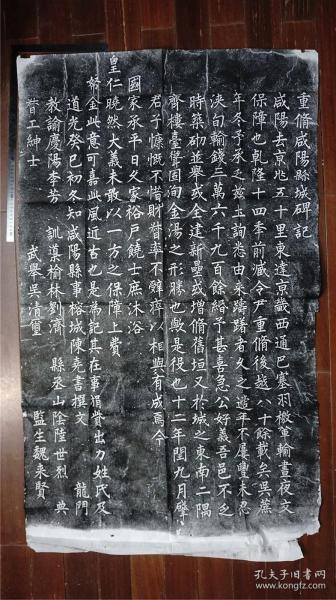 重脩咸陽縣城碑記
咸陽去京兆五十里東達京畿西通巴塞羽檄軍輸晝夜交
保障也乾隆十四季前咸令尹重脩後越八十餘載矣
年冬予承乏茲土詢悉由來躊躇者久之
決旬輸錢三萬六千九百餘緡予甚喜急公好義吾邑不乏
時築砌並舉或全建新或增脩舊垣又於城之東南二隅
齊樓臺鞏固洵金湯之形勝也是役也十二年閏九月
君子慷慨不惜財督率不辭瘁以相與有成焉今
國家承平日久家裕戶饒士庶沐浴
皇仁曉然大義未敢以一方之保障上費
帑金此意可嘉此風近古也是為記其在事捐貲出力姓氏及
道光癸巳初冬知咸陽縣事榕城陳堯書撰文 龍門
教諭慶陽李芳 訓漢榆林劉濟 縣丞山陰陸世烈 典
督工紳士 武舉吳清璽 監生魏秉賢
孔夫子旧书网